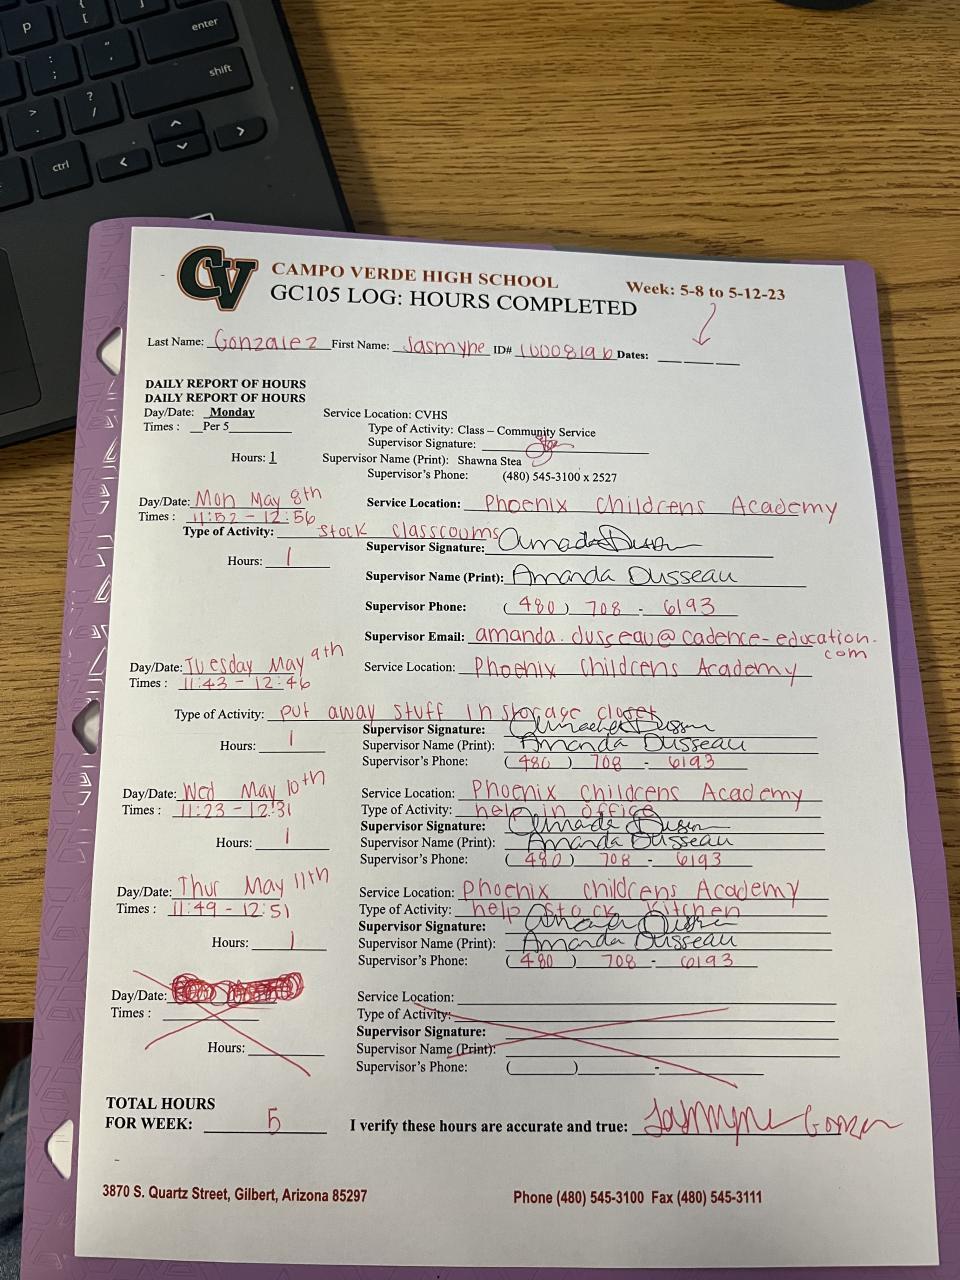 P
{
[
enter
:
;
"
'
shift
>
.
?
/
ctrl
<
>
CV
CAMPO VERDE HIGH SCHOOL
Week: 5-8 to 5-12-23
GC105 LOG: HOURS COMPLETED
Last Name: Gonzalez First Name: Jasmyne ID# Dates:
DAILY REPORT OF HOURS
DAILY REPORT OF HOURS
Day/Date: Monday Service Location: CVHS
Times : Per 5 Type of Activity: Class – Community Service
Supervisor Signature:
Hours: 1 Supervisor Name (Print): Shawna Stea
Supervisor's Phone: (480) 545-3100 x 2527
Day/Date: Mon May 8th Service Location: Phoenix Childrens Academy
Times : 11:52 - 12:56
Type of Activity: stock classrooms
Supervisor Signature: Amanda Dusseau
Hours: 1
Supervisor Name (Print): Amanda Dusseau
Supervisor Phone: (480) 708 - 6193
Supervisor Email: amanda.dusseau@cadence-education.
com
Day/Date: Tuesday May 9th Service Location: Phoenix Childrens Academy
Times : 11:43 - 12:46
Type of Activity: put away stuff in storage closet
Supervisor Signature: Amanda Dusseau
Hours: 1 Supervisor Name (Print): Amanda Dusseau
Supervisor's Phone: (480) 708 - 6193
Day/Date: Wed May 10th Service Location: Phoenix Childrens Academy
Times : 11:23 - 12:31 Type of Activity: help in office
Supervisor Signature: Amanda Dusseau
Hours: 1 Supervisor Name (Print): Amanda Dusseau
Supervisor's Phone: (480) 708 - 6193
Day/Date: Thur May 11th Service Location: Phoenix Childrens Academy
Times : 11:49 - 12:51 Type of Activity: help stock kitchen
Supervisor Signature: Amanda Dusseau
Hours: 1 Supervisor Name (Print): Amanda Dusseau
Supervisor's Phone: (480) 708 - 6193
Day/Date: Service Location:
Times : Type of Activity:
Supervisor Signature:
Hours: Supervisor Name (Print):
Supervisor's Phone: ( ) -
TOTAL HOURS
FOR WEEK: 5 I verify these hours are accurate and true: Jasmyne Gonzalez
3870 S. Quartz Street, Gilbert, Arizona 85297 Phone (480) 545-3100 Fax (480) 545-3111